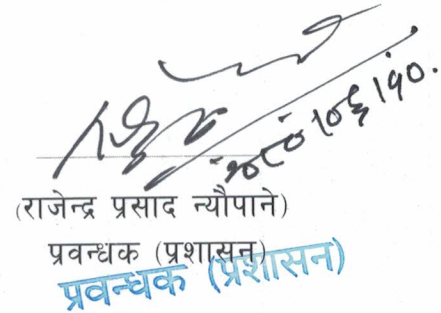 २०८०।०६।१०.
(राजेन्द्र प्रसाद न्यौपाने)
प्रवन्धक (प्रशासन)
प्रवन्धक (प्रशासन)